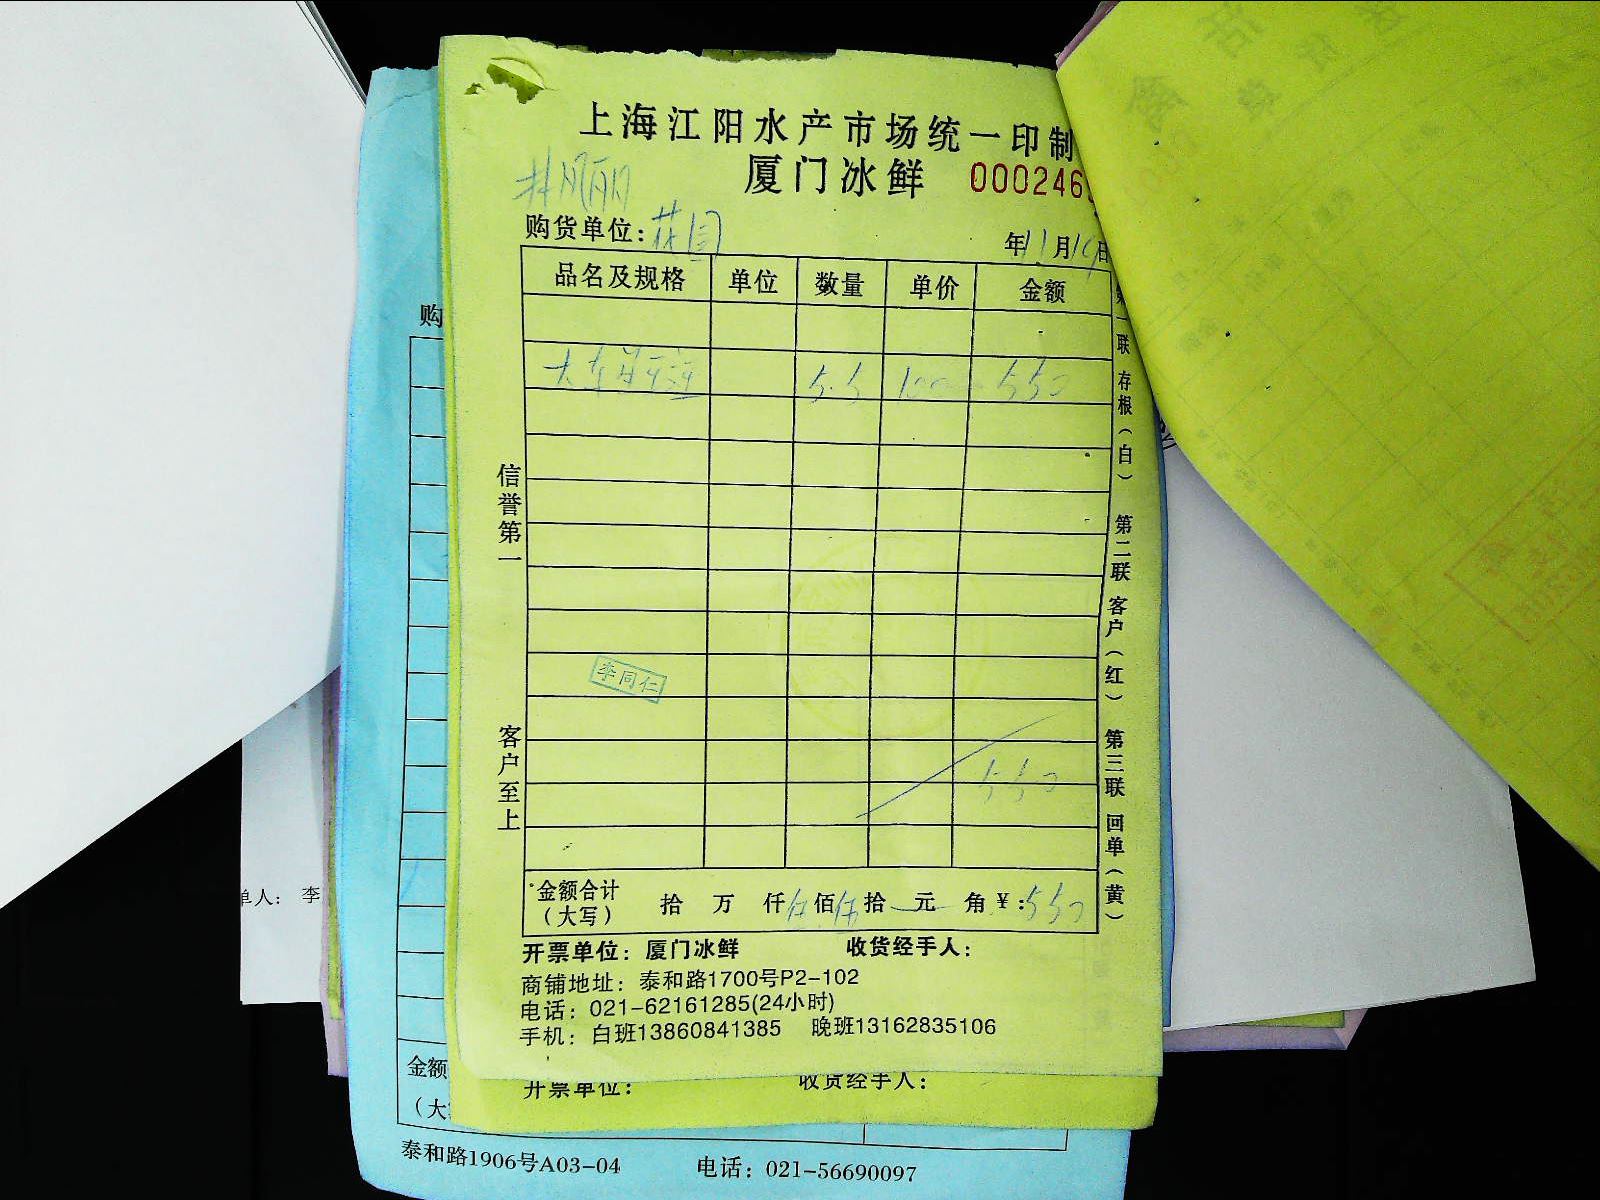 上海江阳水产市场统一印制
厦门冰鲜 000246
购货单位: 花园 年11月14日
品名及规格 单位 数量 单价 金额
5.5 100 550
信誉第一
客户至上
李同仁
550
金额合计（大写） 拾 万 仟伍佰伍拾 元 角 ¥:550
开票单位: 厦门冰鲜 收货经手人:
商铺地址: 泰和路1700号P2-102
电话: 021-62161285(24小时)
手机: 白班13860841385 晚班13162835106
第一联 存根（白） 第二联 客户（红） 第三联 回单（黄）
开票单位: 收货经手人:
购
金额
（大
泰和路1906号A03-04 电话: 021-56690097
单人: 李